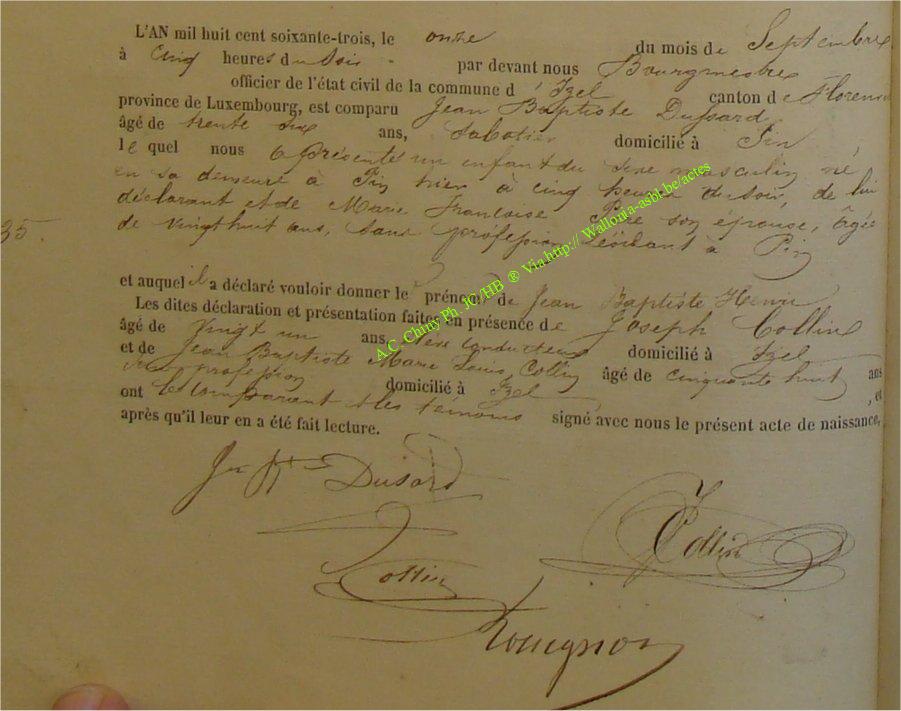 L'AN mil huit cent soixante-trois, le onze du mois de Septembre
à Cinq heures du Soir par devant nous Bourgmestre
officier de l'état civil de la commune d'Izel canton de Florenv
province de Luxembourg, est comparu Jean Baptiste Dussard
âgé de trente six ans, Sabotier domicilié à Pin
le quel nous a Présenté un enfant du sexe masculin né
en sa demeure à Pin hier à cinq heures du soir, de lui
déclarant et de Marie Françoise son épouse, âgée
35.
de vingt huit ans, sans profession résidant à Pin
et auquel il a déclaré vouloir donner le prénom de Jean Baptiste Henri
Les dites déclaration et présentation faites en présence de Joseph Collin
âgé de Vingt un ans, conducteur domicilié à Izel
et de Jean Baptiste Marie Louis Collin âgé de cinquante huit ans
profession domicilié à Izel , et
ont le Comparant et les témoins signé avec nous le présent acte de naissance,
après qu'il leur en a été fait lecture.
A.C. Chiny Ph. JC/HB ® Via http:// Wallonia-asbl.be/actes
Dusard
J Collin
Collin
Rouignon